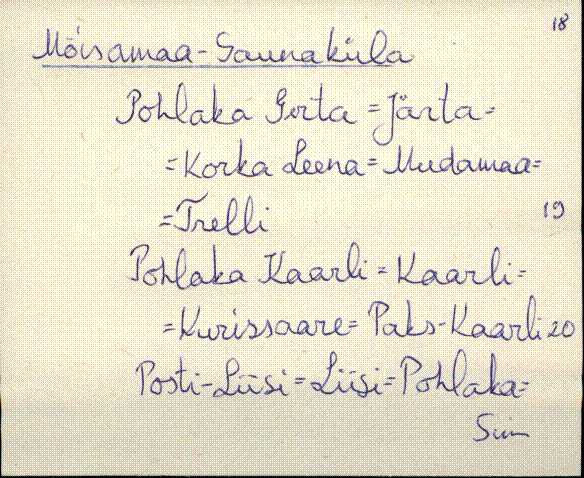 18
Mõisamaa-Saunaküla
Pohlaka Gerta = Järta =
= Korka Leena = Mudamaa =
= Trelli 19
Pohlaka Kaarli = Kaarli =
= Kurissaare = Paks-Kaarli 20
Posti-Liisi = Liisi = Pohlaka =